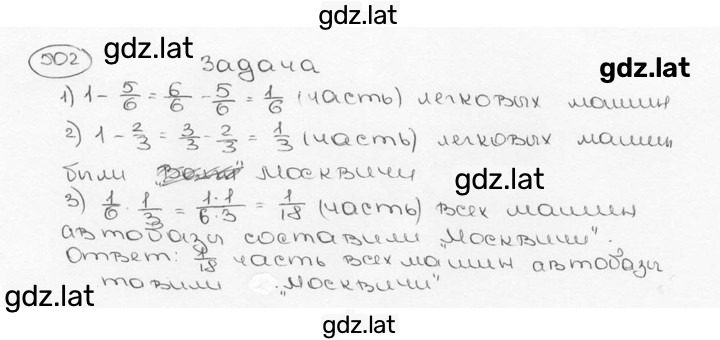 gdz.lat
502 gdz.lat Задача gdz.lat
1) 1 - 5/6 = 6/6 - 5/6 = 1/6 (часть) легковых машин
2) 1 - 2/3 = 3/3 - 2/3 = 1/3 (часть) легковых машин
были "Москвичи gdz.lat
3) 1/6 · 1/3 = 1·1/6·3 = 1/18 (часть) всех машин
автобазы составили "Москвичи".
Ответ: 1/18 часть всех машин автобазы
gdz.lat товили "Москвичи" gdz.lat
gdz.lat